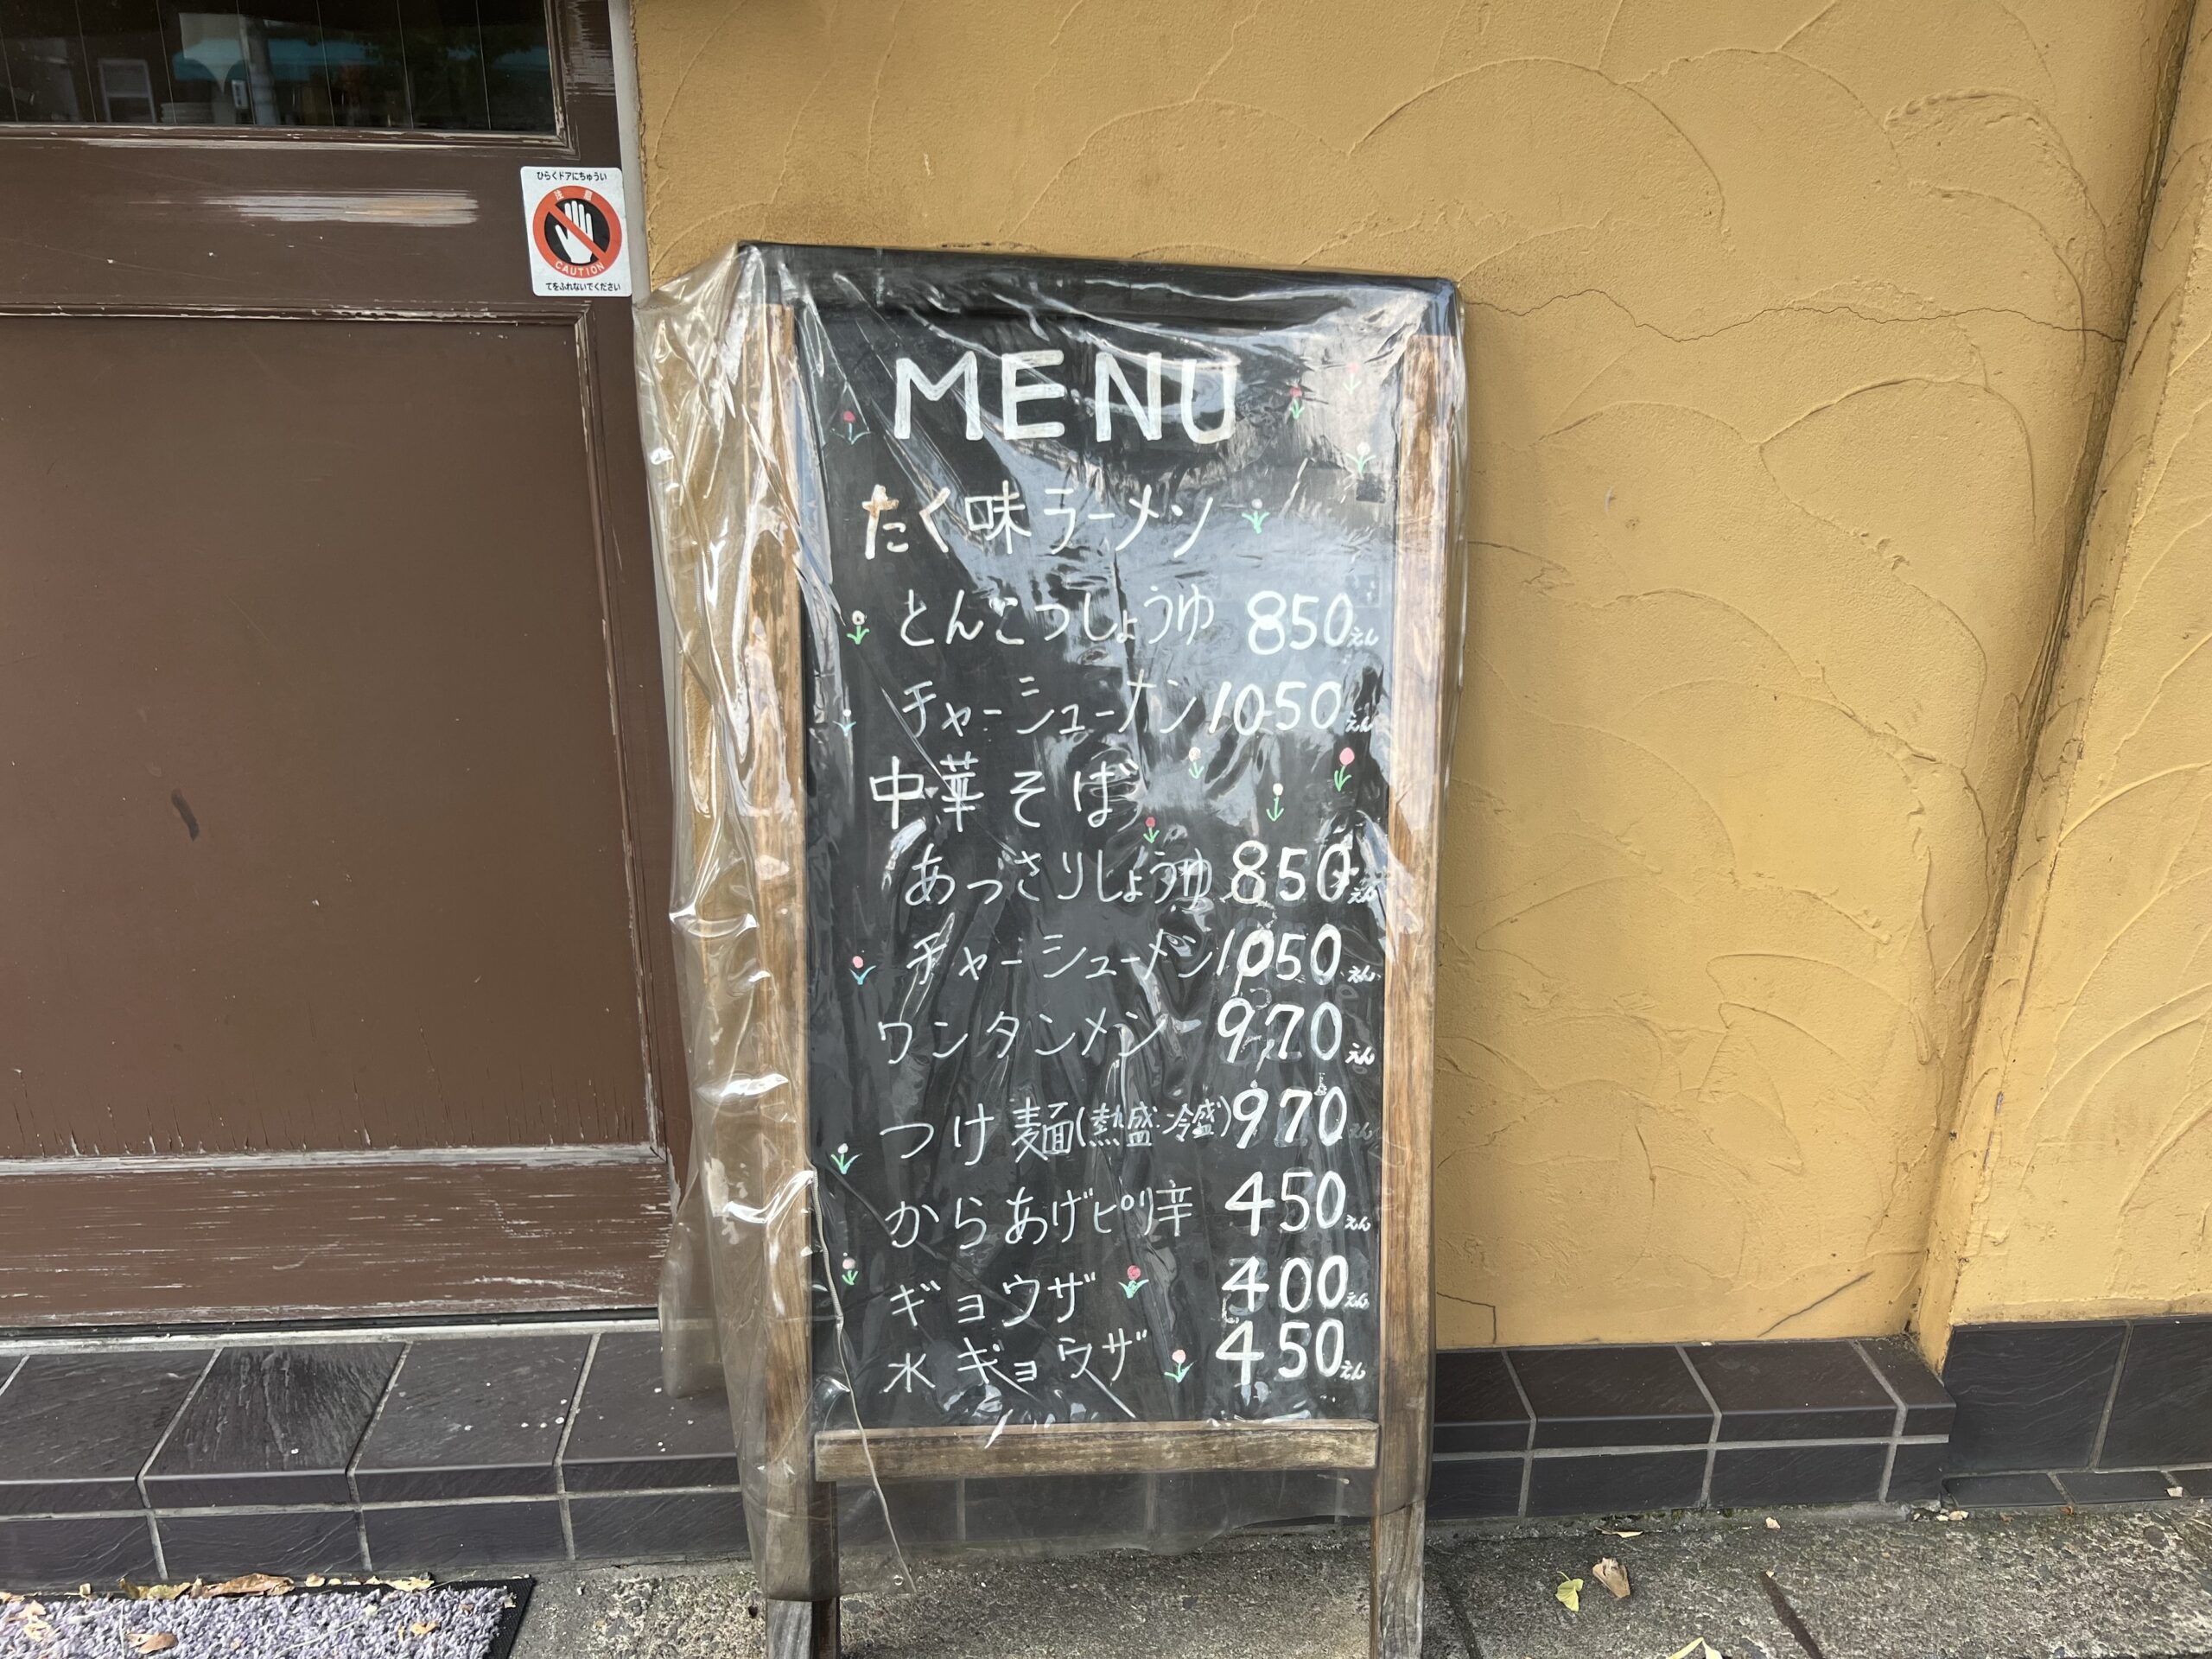 ひらくドアにちゅうい
注意
CAUTION
てをふれないでください
MENU
たく味ラーメン
とんこつしょうゆ 850えん
チャーシューメン 1050えん
中華そば
あっさりしょうゆ 850えん
チャーシューメン 1050えん
ワンタンメン 970えん
つけ麺(熱盛・冷盛) 970えん
からあげピリ辛 450えん
ギョウザ 400えん
水ギョウザ 450えん